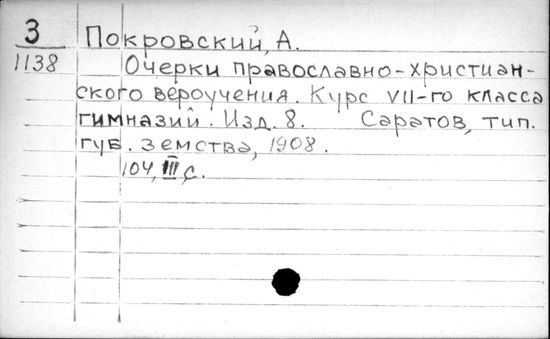 3
1138
Покровский, А.
Очерки православно-христиан-
ского вероучения. Курс VII-го класса
гимназий. Изд. 8. Саратов, тип.
губ. земства, 1908.
104, III с.